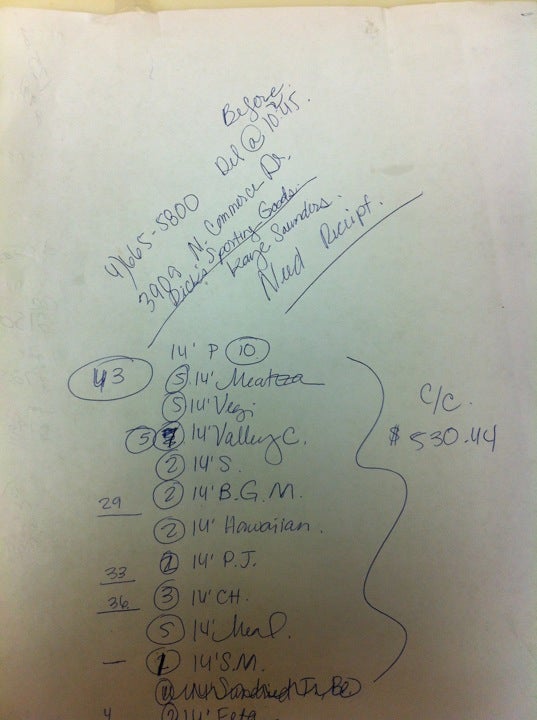 Before
Del @ 10:45.
4/665-5800
3909 N. Commerce Dr.
Dick's Sporting Goods.
Kaye Saunders.
Need Reciipt.
14' P 10
43
5 14' Meatzza
5 14' Vegi
5 14' Valley C.
c/c.
$530.44
2 14' S.
29 2 14' B.G.M.
2 14' Hawaiian.
33 14' P.J.
36 3 14' CH.
5 14'
1 14' S.M.
4 2 14' Feta